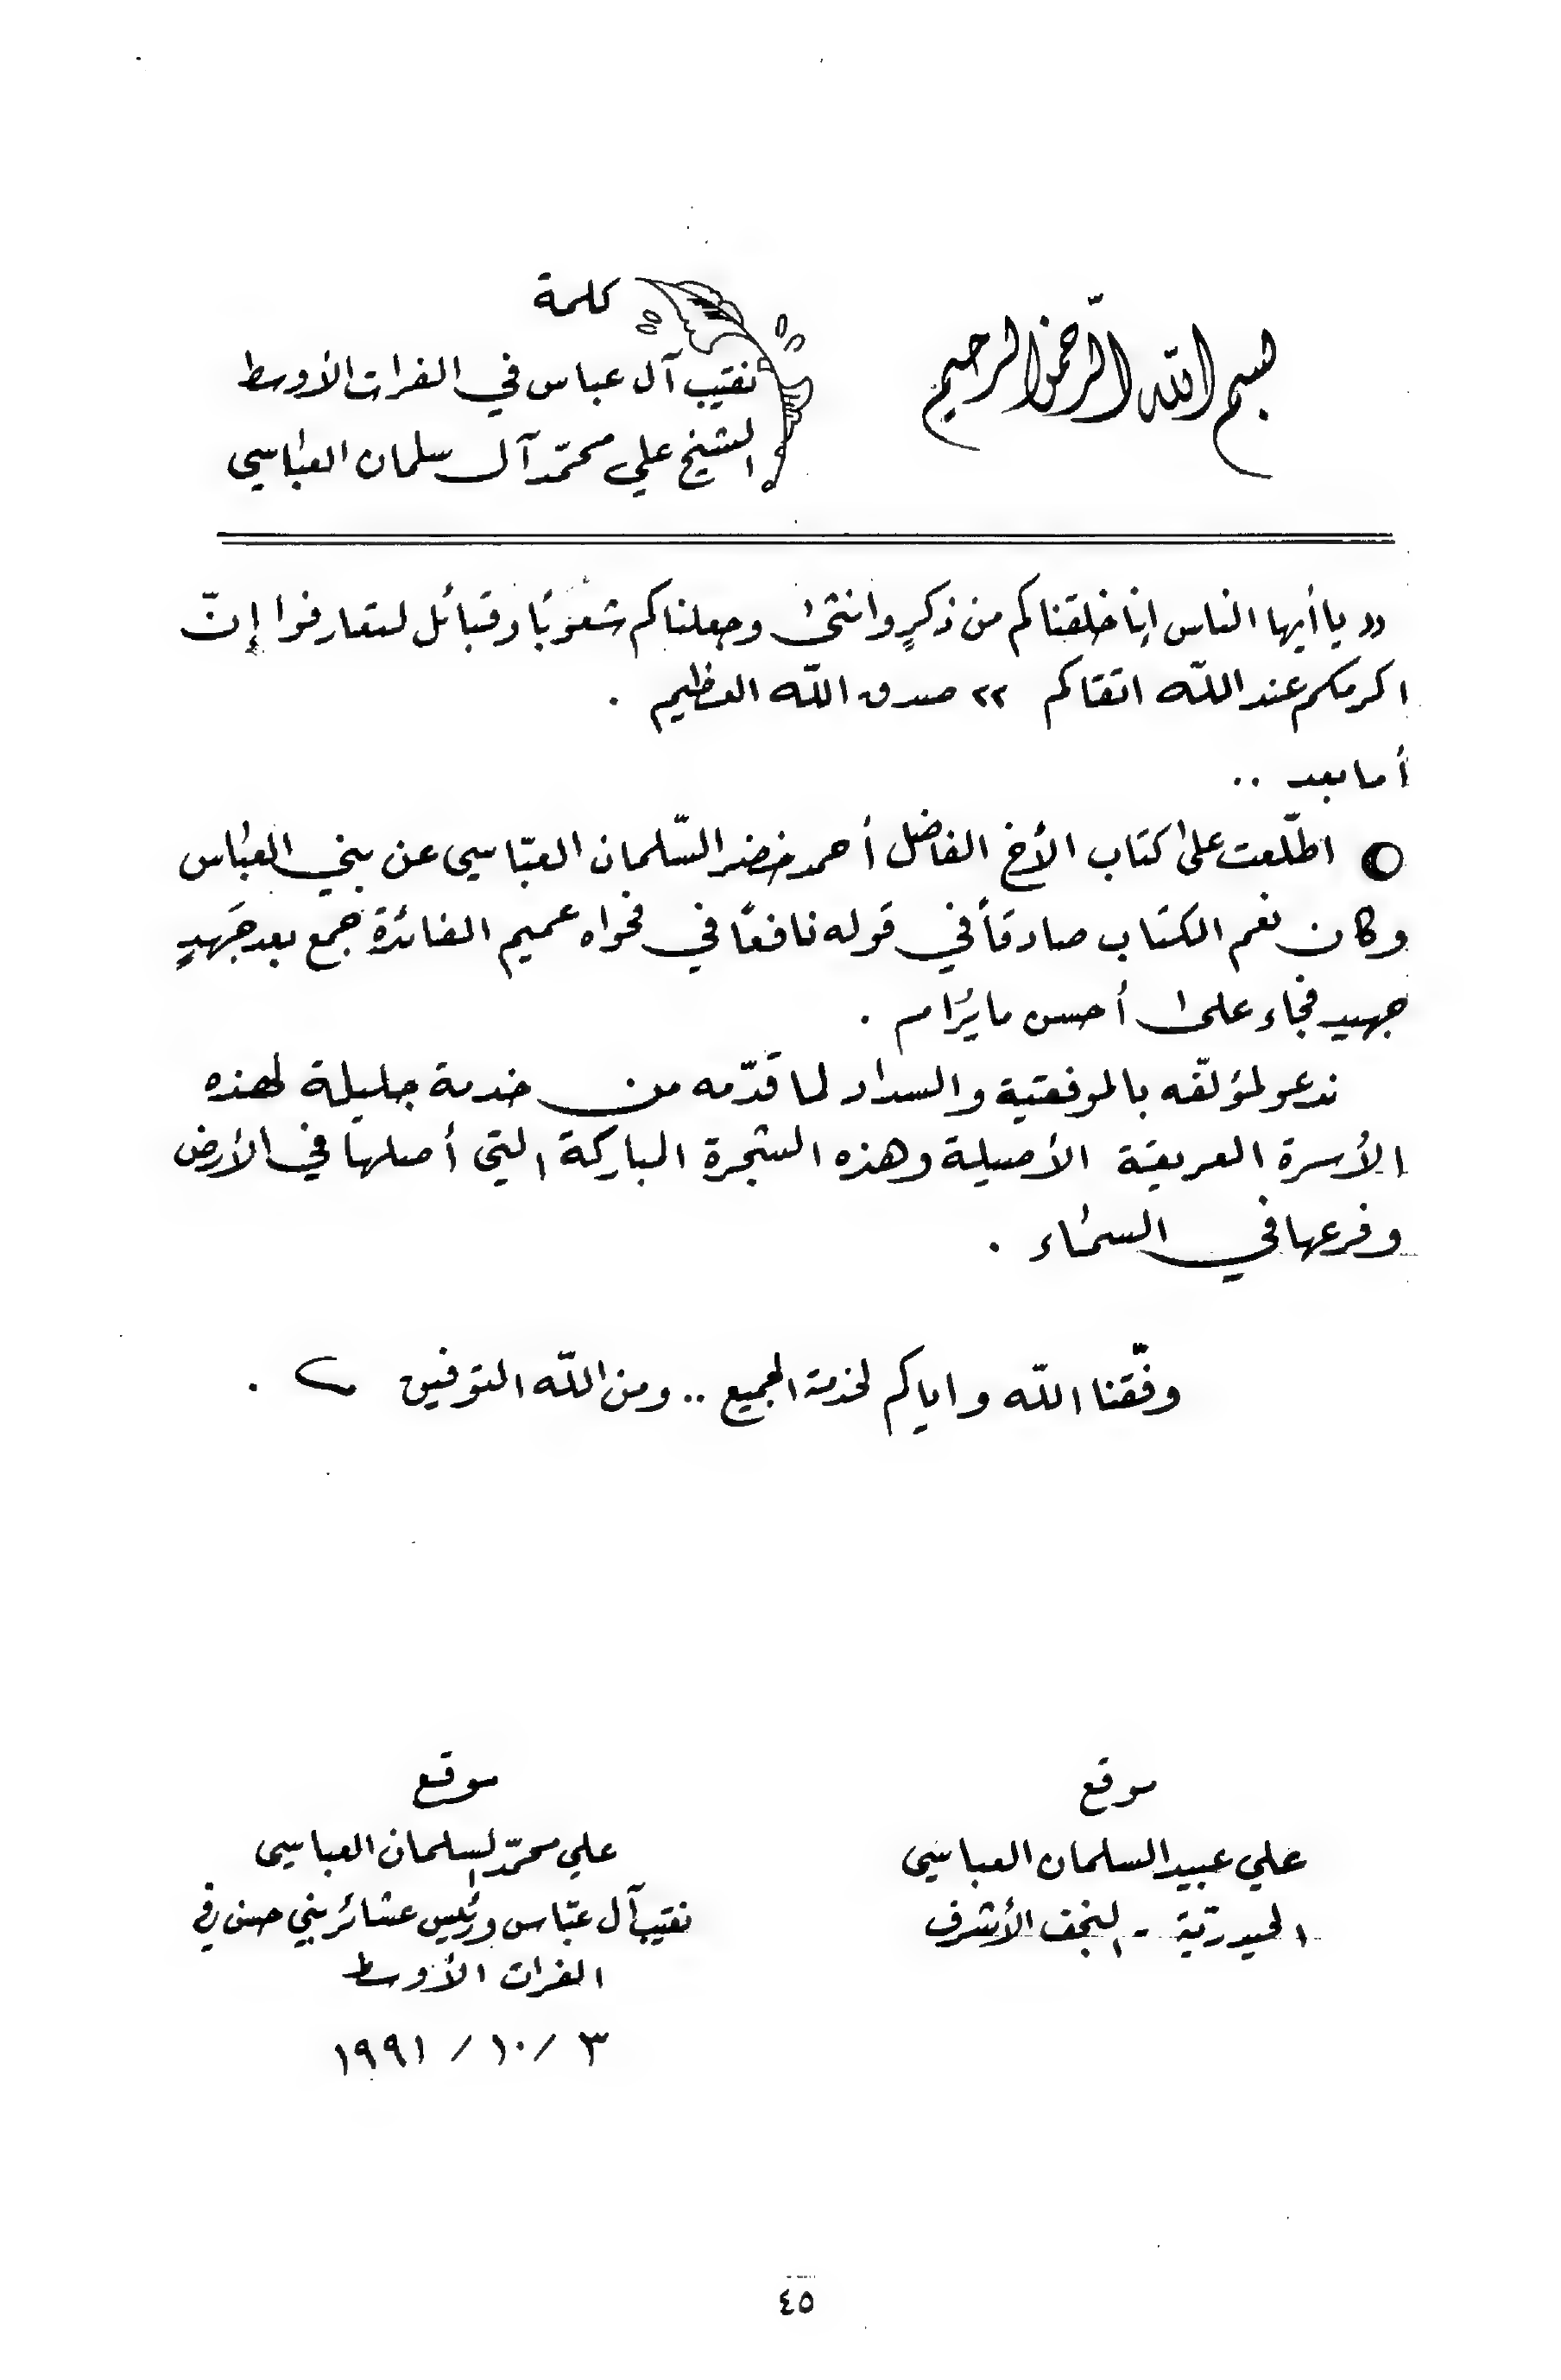 بسم الله الرحمن الرحيم
كلمة
نقيب آل عباس في الفرات الأوسط
الشيخ علي محمّد آل سلمان العباسي
« يا أيها الناس إنا خلقناكم من ذكرٍ وانثى وجعلناكم شعوبًا وقبائل لتعارفوا إنّ
اكرمكم عند اللّه اتقاكم » صدق اللّه العظيم .
أما بعد ..
اطّلعت على كتاب الأخ الفاضل أحمد خضر السّلمان العبّاسي عن بني العباس
وكان نعم الكتاب صادقاً في قوله نافعًا في فحواه عميم الفائدة جمع بعد جَهدٍ
جهيد فجاء على أحسن ما يُرام .
ندعو لمؤلّفه بالموفقية والسداد لما قدّمه من خدمة جليلة لهذه
الأسرة العريقة الأصيلة وهذه الشجرة المباركة التي أصلها في الأرض
وفرعها في السماء .
وفّقنا اللّه واياكم لخدمة الجميع .. ومن اللّه التوفيق .
موقع
علي عبيد السلمان العباسي
الحيدريّة - النجف الأشرف
موقع
علي محمّد السلمان العباسي
نقيب آل عبّاس ورئيس عشائر بني حسن في
الفرات الأوسط
٣ / ١٠ / ١٩٩١
٤٥